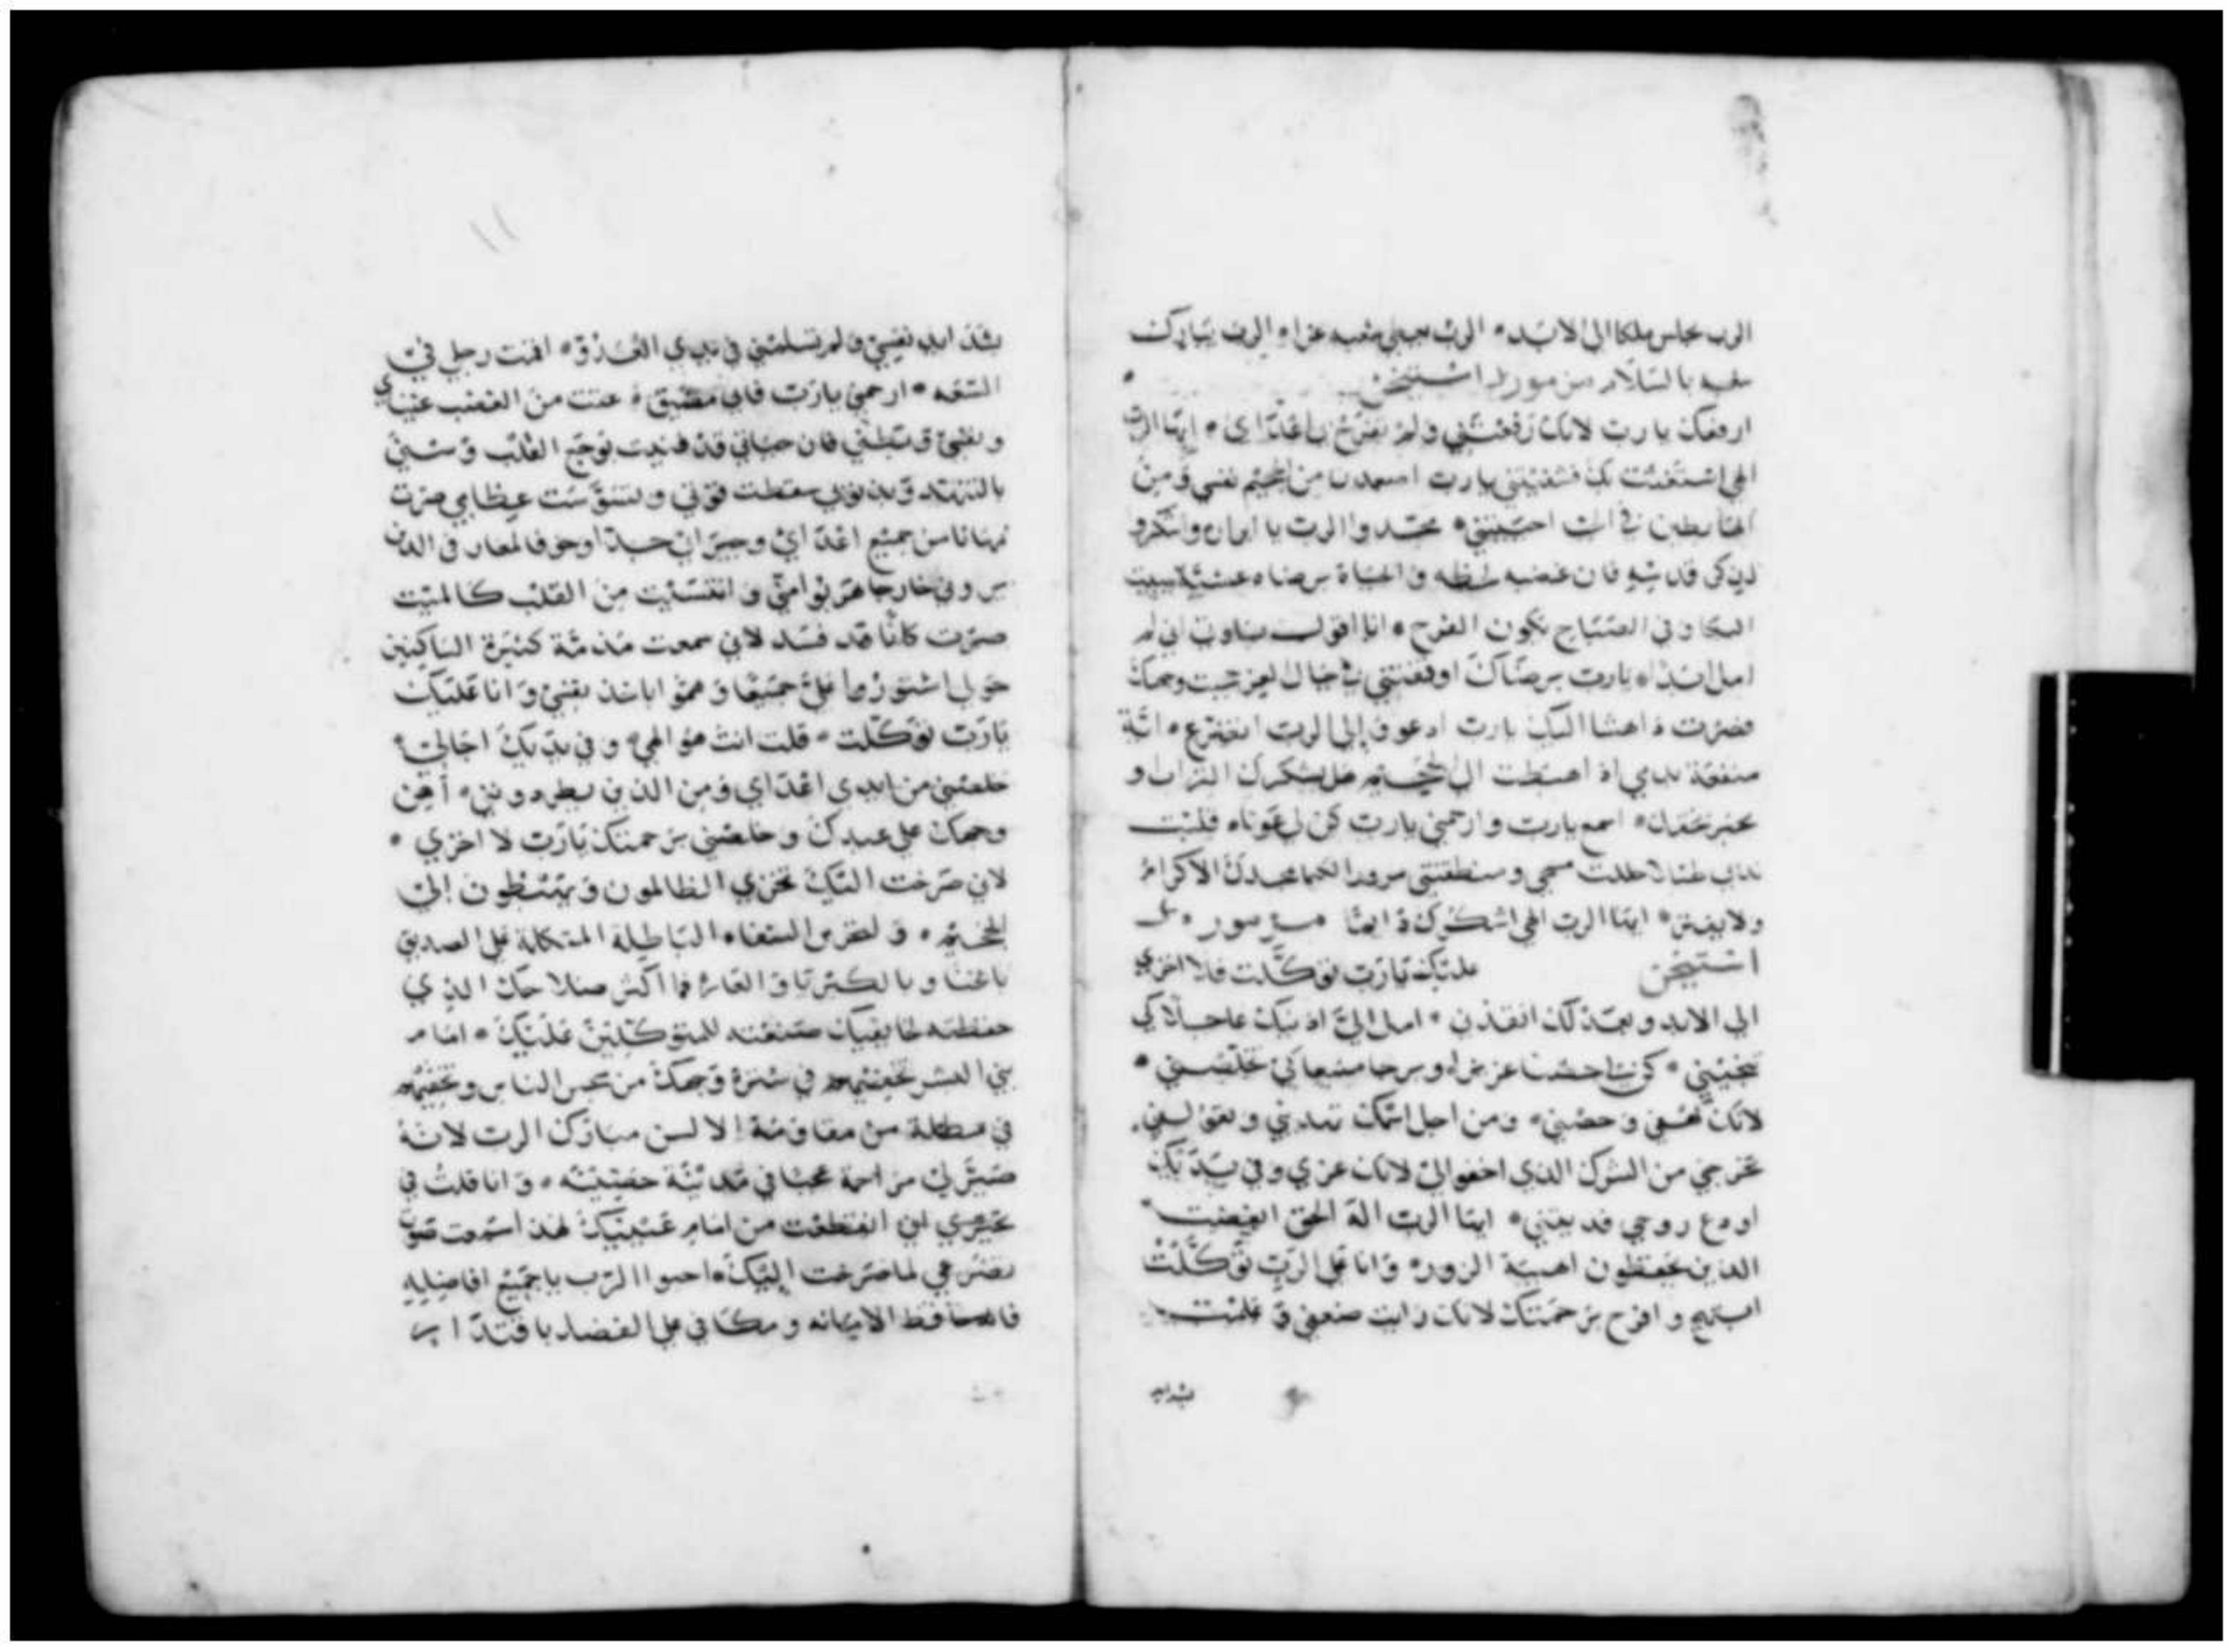 الرب يجلس ملكا الى الابد * الرب يعطي شعبه عزاء الرب يبارك
شعبه بالسلام مزمور استيخن
ارفعك يا رب لانك رفعتني ولم تفرح بي اعداي * ايها الرب
الهي استغثت بك فشفيتني يا رب اصعدت من الجحيم نفسي ومن
الهابطين في الجب احييتني * مجدوا الرب يا ابراره واشكروا
لذكر قدسه فان غضبه لحظه والحياة برضاه عشية يبيت
البكا وفي الصباح يكون الفرح * انا اقول اني لم
ازل ابدا * يا رب برضاك اوقفتني وجهك
فصرت داهشا اليك يا رب ادعو والى الرب اتضرع * اية
منفعة بدمي اذ اهبطت الى الجحيم هل يشكرك التراب او
يخبر بحقك * اسمع يا رب وارحمني يا رب كن لي عونا * قلبت
حللت مسحي ومنطقتني سرورا لكيما يمجدك الاكرام
ولا يندم * ايها الرب الهي اشكرك دايما مزمور ل
استيخن عليك يا رب توكلت فلا اخزي
الي الابد وبعدلك انقذني * امل الي اذنيك عاجلا كي
تنجيني * كن لي حصنا عزيزا وبرجا منيعا كي تخلصني *
لانك كهفي وحصني * ومن اجل اسمك تهديني وتعولني
تخرجني من الشرك الذي اخفوا لي لانك عزي وفي يديك
اودع روحي فديتني * ايها الرب اله الحق ابغضت
الذين يحفظون اهبية الزور * وانا على الرب توكلت
ابتهج وافرح برحمتك لانك رايت ضعفي وخلصت
شدايد
شدايد نفسي ولم تسلمني في يدي العدو * اقمت رجلي في
السعه * ارحمني يا رب فاني مضيق * عتت من الغضب عيناي
ونفسي وبطني فان حياتي قد فنيت بوجع القلب وسني
بالتنهد وبذنوبي سقطت قوتي وتشوشت عظامي صرت
مهانا من جميع اعداي وجيراني جدا وخوفا لمعارفي الذين
يروني خارجا هربوا مني وانتسيت من القلب كالميت
صرت كانا قد فسد لاني سمعت مذمة كثيرة الساكنين
حولي اشتوروا علي جميعا وهموا باخذ نفسي وانا عليك
يا رب توكلت * قلت انت هو الهي * وفي يديك اجالي *
خلصني من ايدي اعداي ومن الذين يطردونني * اضئ
وجهك على عبدك وخلصني برحمتك يا رب لا اخزي *
لاني صرخت اليك تخزي الظالمون ويهبطون الى
الجحيم * ولتخرس الشفاه الباطلة المتكلمة على الصديق
باعثنا وبالكبريا والعار * فما اكثر صلاحك الذي
حفظته لخايفيك صنعته للمتوكلين عليك * امام
بني البشر تخفيهم في سترة وجهك من سجس الناس وتخفيهم
في مظلة من مقاومة الالسن مبارك الرب لانه
صير لي مراحمه عجبا في مدينة حصينة * وانا قلت في
تحيري اني انقطعت من امام عينيك لهذا استمعت صوت
تضرعي لما صرخت اليك * احبوا الرب يا جميع افاضيله
فانه حافظ الامانه ومكافي على الفضل